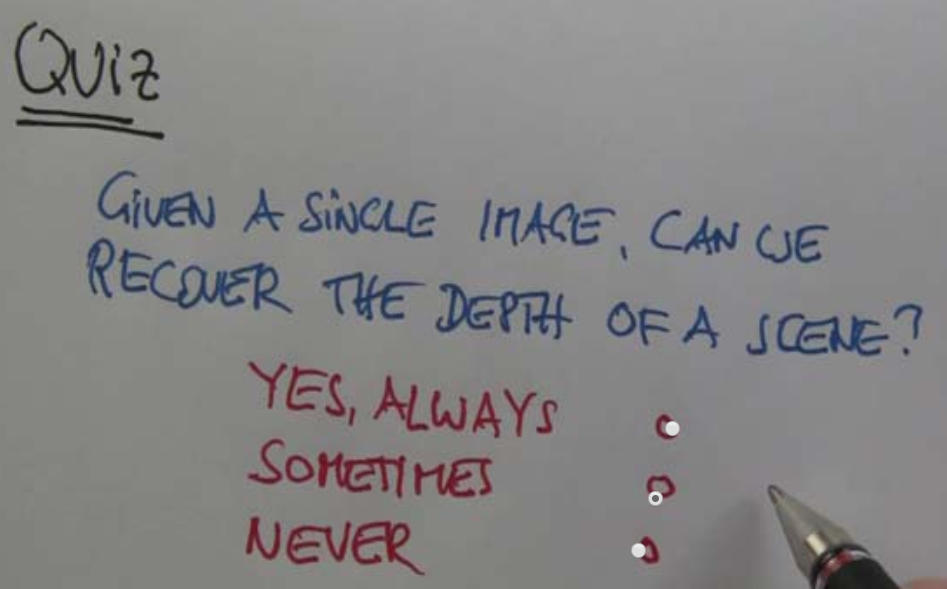 QUiZ
GiVEN A SiNGLE IMAGE, CAN WE
RECOVER THE DEPTH OF A SCENE?
YES, ALWAYS
SOMETIMES
NEVER